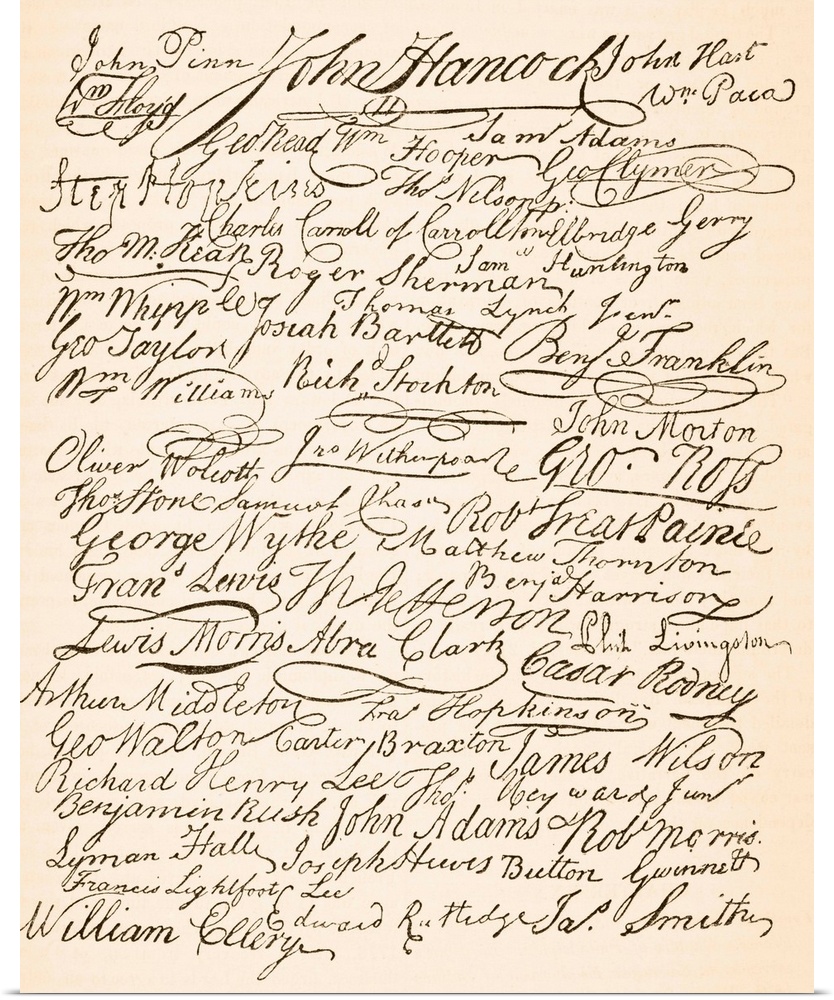 John Pinn John Hancock John Hart
Wm Floyd Wm. Paca
Geo Read Wm Hooper Sam Adams
Step Hopkins Thos Nelson jr. Geo Clymer
Charles Carroll of Carrollton Elbridge Gerry
Tho M. Kean Roger Sherman Sam Huntington
Wm Whipple Thomas Lynch Junr.
Geo Taylor Josiah Bartlett Benj. Franklin
Wm Williams Rich Stockton
John Morton
Oliver Wolcott Jno Witherspoon Geo. Ross
Thos Stone Samuel Chase Robt Treat Paine
George Wythe Matthew Thornton
Frans Lewis Th Jefferson Benja Harrison
Lewis Morris Abra Clark Phil Livingston
Cæsar Rodney
Arthur Middleton Fras Hopkinson
Geo Walton Carter Braxton James Wilson
Richard Henry Lee Thos. Heyward Junr
Benjamin Rush John Adams Robt Morris.
Lyman Hall Joseph Hewes Button Gwinnett
Francis Lightfoot Lee
William Ellery Edward Rutledge Jas. Smith